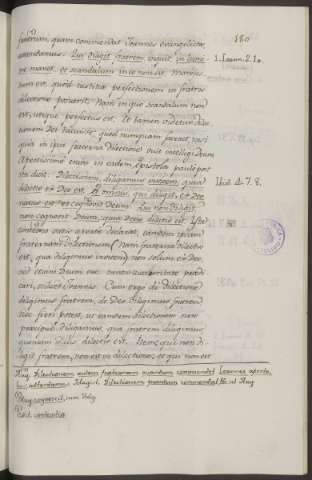 180
fratrum, quam commendat Joannes evangelista,
attendamus. Qui diligit fratrem, inquit, in lumine
manet, et scandalum in eo non est. Manifes-
tum est, quod iustitiae perfectionem in fratris
dilectione posuerit: Nam in quo scandalum non
est, utique perfectus est. Et tamen videtur dilec-
tionem Dei tacuisse: quod nunquam faceret, nisi
quia in ipsa fraterna dilectione vult intelligi Deum.
Apertissime enim in eadem Epistola paulo post
ita dicit: Dilectissimi, diligamus invicem, quia
dilectio ex Deo est. Et omnis, qui diligit, ex Deo
natus est et cognovit Deum. Qui non diligit,
non cognovit Deum, quia Deus dilectio est. Ista
contextio satis aperte declarat, eamdem ipsam
fraternam dilectionem (Nam fraterna dilectio
est, qua diligimus invicem) non solum ex Deo,
sed etiam Deum esse tanta auctoritate praedi-
cari,
Cum ergo de dilectione
diligimus fratrem, de Deo diligimus fratrem.
Nec fieri potest, ut eamdem dilectionem non
praecipue diligamus, qua fratrem diligimus,
quoniam Deus dilectio est. Item qui non di-
ligit fratrem, non est in dilectione; et qui non est
1. Joann. 2. 10.
Ibid. 4. 7. 8.
Dilectionem autem fraternam quantum commendet Joannes aposto-
lus, attendamus.
Dilectionem quantum commendat